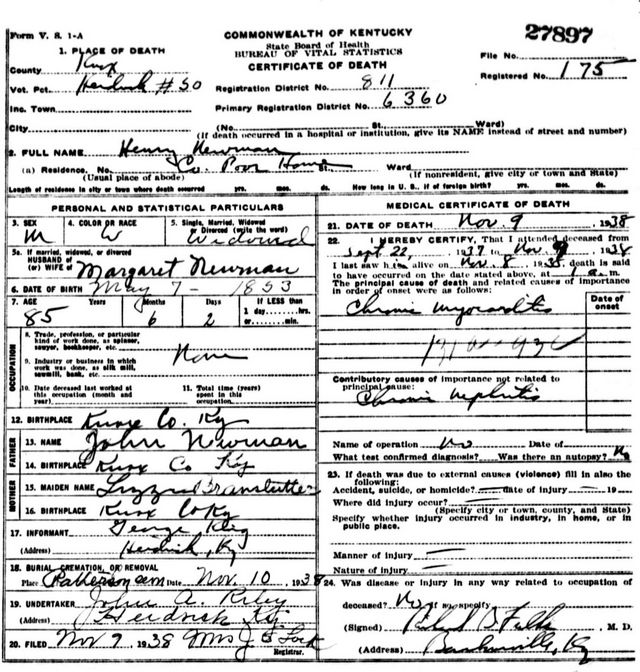 Form V. S. 1-A
COMMONWEALTH OF KENTUCKY
27897
State Board of Health
BUREAU OF VITAL STATISTICS
CERTIFICATE OF DEATH
1. PLACE OF DEATH
County Knox
Vot. Pct. Heidrick #50
Inc. Town
City
File No.
Registered No. 175
Registration District No. 811
Primary Registration District No. 6360
(No. St. Ward)
(If death occurred in a hospital or institution, give its NAME instead of street and number)
2. FULL NAME Henry Newman
(a) Residence. No. Co. Poor Home St. Ward
(Usual place of abode) (If nonresident, give city or town and State)
Length of residence in city or town where death occurred yrs. mos. ds. How long in U. S., if of foreign birth? yrs. mos. ds.
PERSONAL AND STATISTICAL PARTICULARS
3. SEX M
4. COLOR OR RACE W
5. Single, Married, Widowed or Divorced (write the word) Widowed
5a. If married, widowed, or divorced
HUSBAND of
(or) WIFE of Margaret Newman
6. DATE OF BIRTH May 7 - 1853
7. AGE Years Months Days If LESS than
85 6 2 1 day, hrs.
or min.
OCCUPATION
8. Trade, profession, or particular
kind of work done, as spinner,
sawyer, bookkeeper, etc. None
9. Industry or business in which
work was done, as silk mill,
sawmill, bank, etc.
10. Date deceased last worked at
this occupation (month and
year)
11. Total time (years)
spent in this
occupation
12. BIRTHPLACE Knox Co. Ky
FATHER
13. NAME John Newman
14. BIRTHPLACE Knox Co Ky
MOTHER
15. MAIDEN NAME Lizzie
16. BIRTHPLACE Knox Co Ky
17. INFORMANT George
(Address) Heidrick, Ky
18. BURIAL, CREMATION, OR REMOVAL
Place Patterson cem Date Nov. 10, 1938
19. UNDERTAKER John A. Riley
(Address) Heidrick Ky
20. FILED Nov 9 1938 Mrs J B
Registrar.
MEDICAL CERTIFICATE OF DEATH
21. DATE OF DEATH Nov 9 1938
22. I HEREBY CERTIFY, That I attended deceased from
Sept 22, 1937 to Nov 9, 1938
I last saw him alive on Nov. 8 1938, death is said
to have occurred on the date stated above, at 1 a. m.
The principal cause of death and related causes of importance
in order of onset were as follows:
Date of onset
Chronic myocarditis
Contributory causes of importance not related to
principal cause:
Chronic nephritis
Name of operation no Date of
What test confirmed diagnosis? Was there an autopsy? No
23. If death was due to external causes (violence) fill in also the
following:
Accident, suicide, or homicide? date of injury 19
Where did injury occur?
(Specify city or town, county, and State)
Specify whether injury occurred in industry, in home, or in
public place.
Manner of injury
Nature of injury
24. Was disease or injury in any way related to occupation of
deceased? No If so, specify
(Signed) M. D.
(Address) Barbourville, Ky